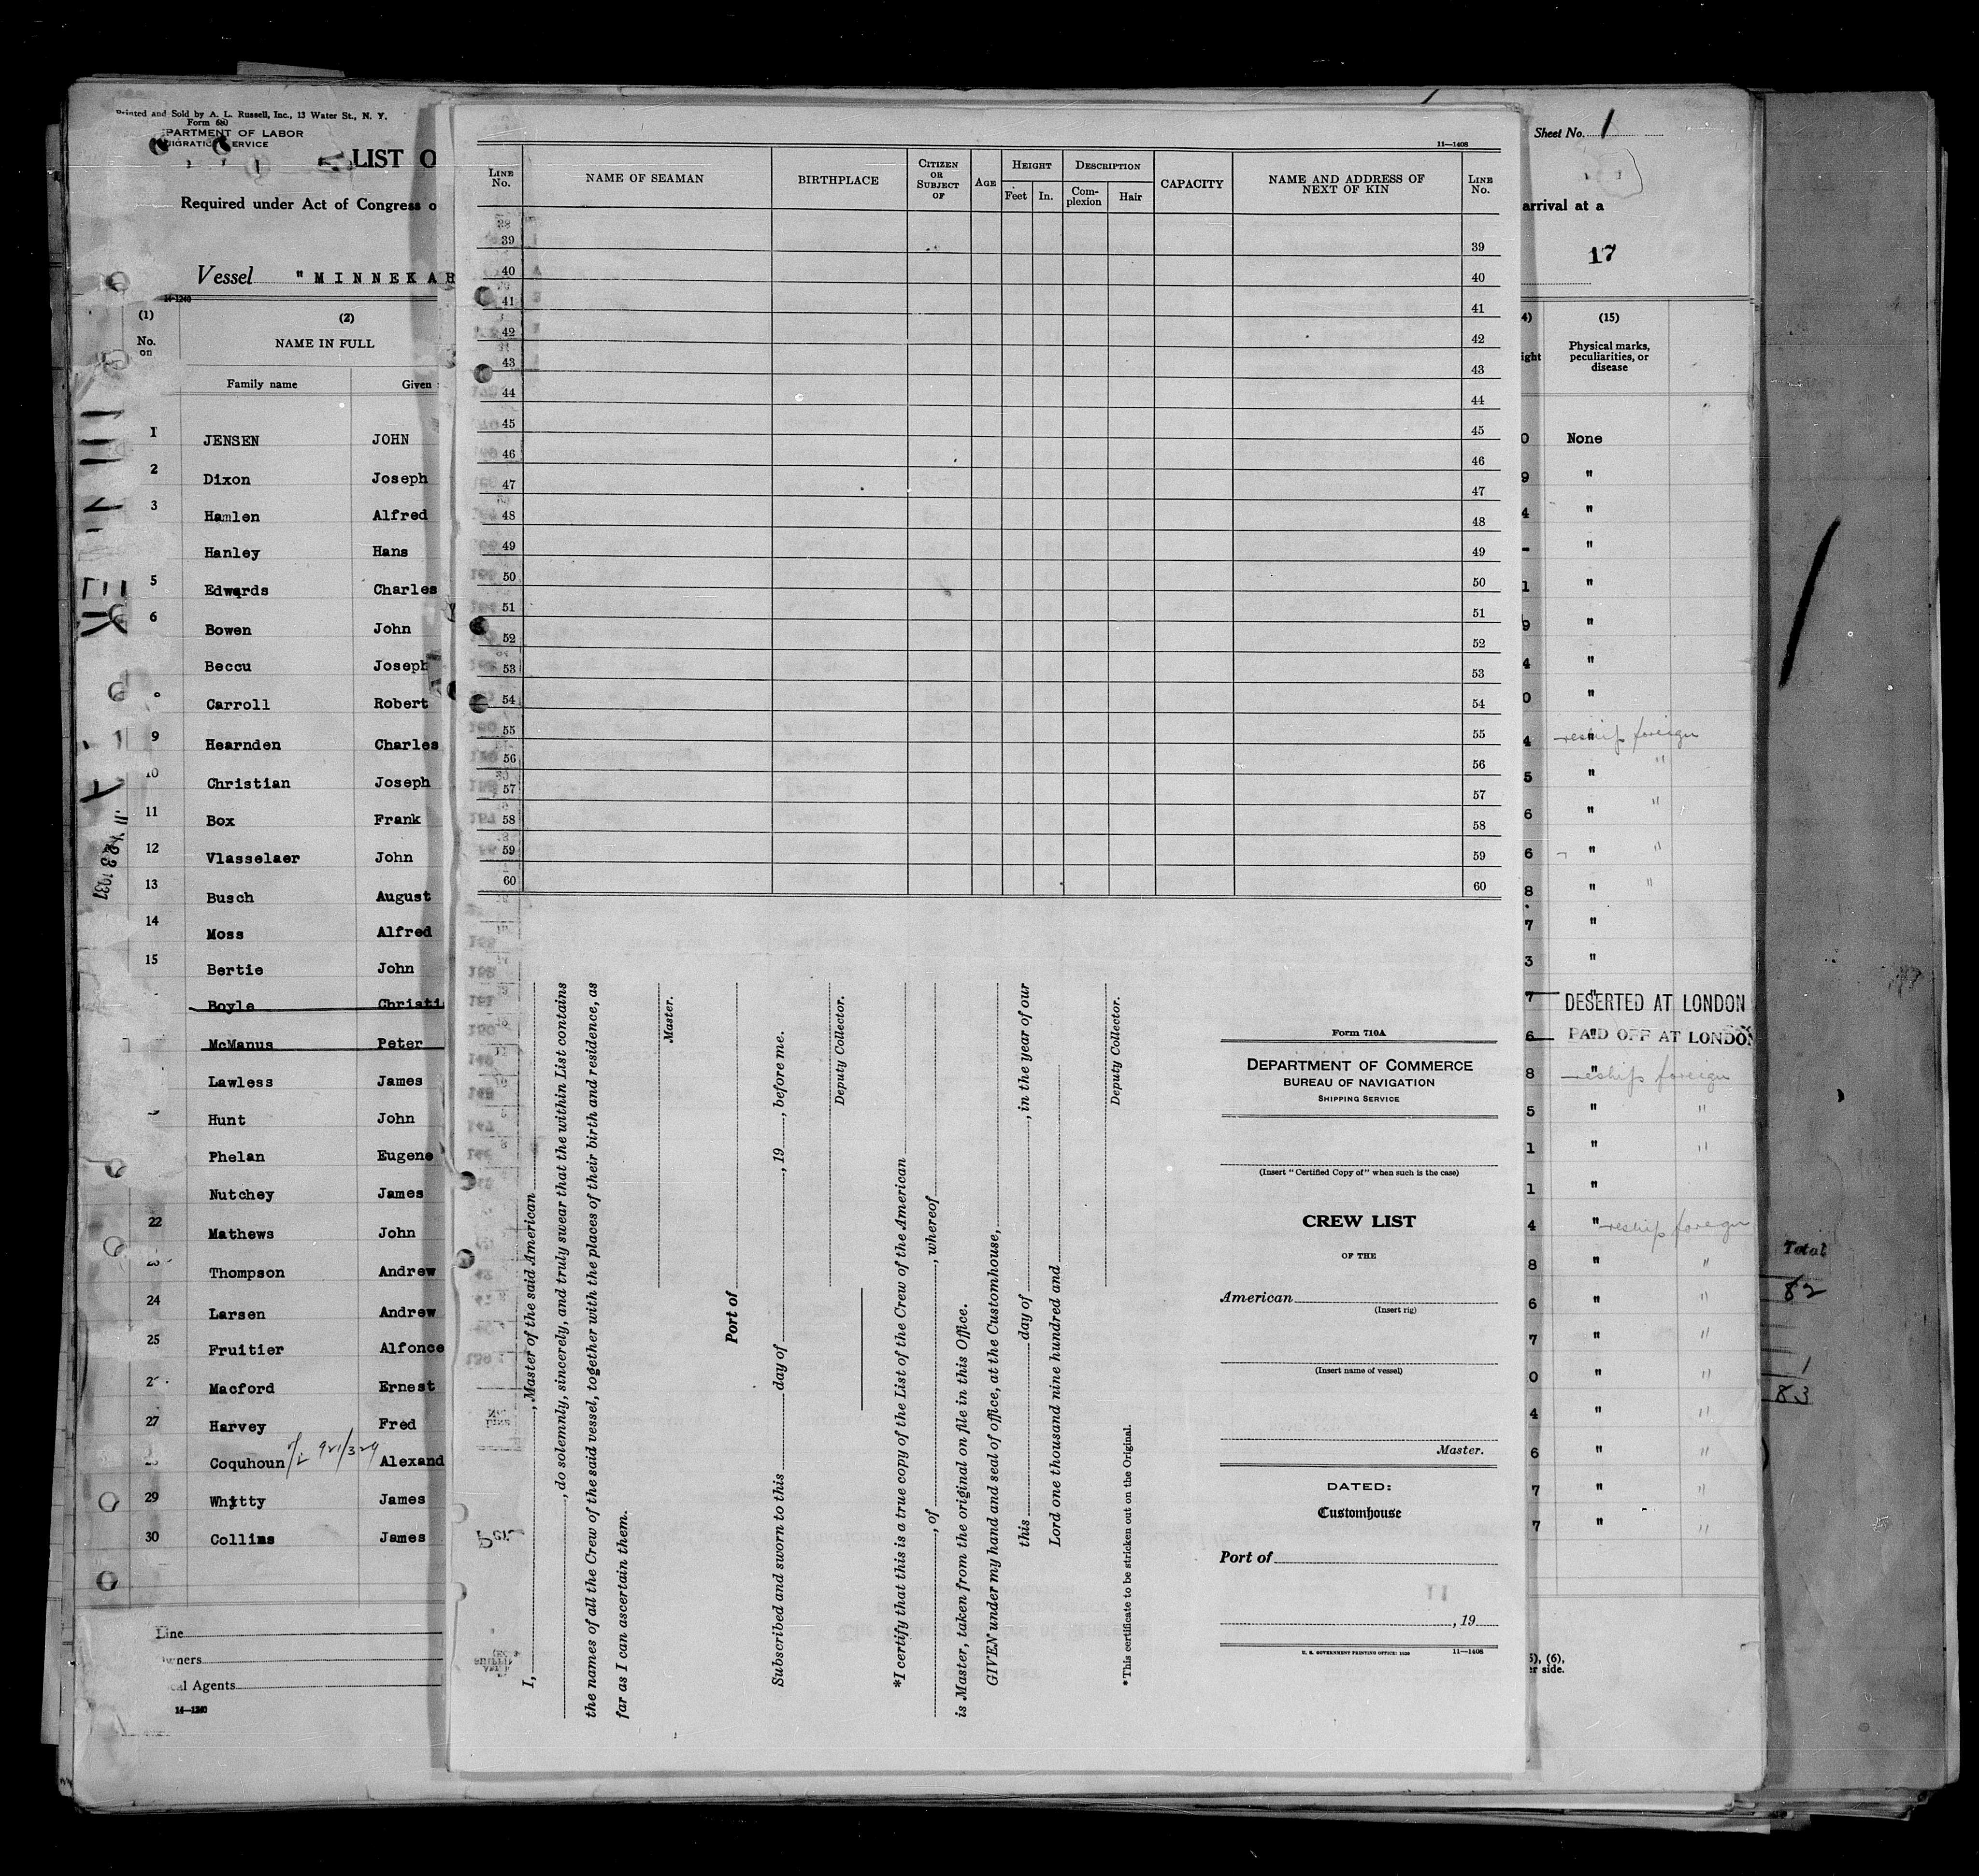 Printed and Sold by A. L. Russell, Inc., 13 Water St., N. Y.
Form 680
PARTMENT OF LABOR
MIGRATION SERVICE
LIST O
Required under Act of Congress o
Vessel "MINNEKAH
14-1240
(1) (2)
No. on
NAME IN FULL
Family name Given
1 JENSEN JOHN
2 Dixon Joseph
3 Hamlen Alfred
Hanley Hans
5 Edwards Charles
6 Bowen John
Beccu Joseph
Carroll Robert
9 Hearnden Charles
10 Christian Joseph
11 Box Frank
12 Vlasselaer John
13 Busch August
14 Moss Alfred
15 Bertie John
Boyle Christi
McManus Peter
Lawless James
Hunt John
Phelan Eugene
Nutchey James
22 Mathews John
Thompson Andrew
24 Larsen Andrew
25 Fruitier Alfonce
Macford Ernest
27 Harvey Fred
Coquhoun Alexand
29 Whitty James
30 Collins James
Line
wners
cal Agents
14-1240
11—1408
LINE No.
NAME OF SEAMAN
BIRTHPLACE
CITIZEN OR SUBJECT OF
AGE
HEIGHT
Feet In.
DESCRIPTION
Complexion Hair
CAPACITY
NAME AND ADDRESS OF NEXT OF KIN
LINE No.
39 39
40 40
41 41
42 42
43 43
44 44
45 45
46 46
47 47
48 48
49 49
50 50
51 51
52 52
53 53
54 54
55 55
56 56
57 57
58 58
59 59
60 60
I, , Master of the said American
, do solemnly, sincerely, and truly swear that the within List contains
the names of all the Crew of the said vessel, together with the places of their birth and residence, as
far as I can ascertain them.
Master.
Port of
Subscribed and sworn to this day of , 19 , before me.
Deputy Collector.
*I certify that this is a true copy of the List of the Crew of the American
, of , whereof
is Master, taken from the original on file in this Office.
GIVEN under my hand and seal of office, at the Customhouse,
this day of , in the year of our
Lord one thousand nine hundred and
Deputy Collector.
*This certificate to be stricken out on the Original.
Form 710A
DEPARTMENT OF COMMERCE
BUREAU OF NAVIGATION
SHIPPING SERVICE
(Insert "Certified Copy of" when such is the case)
CREW LIST
OF THE
American
(Insert rig)
(Insert name of vessel)
Master.
DATED:
Customhouse
Port of
, 19
U. S. GOVERNMENT PRINTING OFFICE: 1930 11—1408
Sheet No. 1
arrival at a
17
4) (15)
ight
Physical marks, peculiarities, or disease
0 None
9 "
4 "
- "
1 "
9 "
4 "
0 "
4 " reship foreign
5 " "
6 " "
6 " "
8 " "
7 "
3 "
7 " DESERTED AT LONDON
6 " PAID OFF AT LONDON
8 " reship foreign
5 " "
1 " "
1 "
4 " reship foreign
8 " "
6 " "
7 " "
0 " "
4 " "
6 " "
7 " "
7 " "
5), (6),
er side.
Total
82
1
83